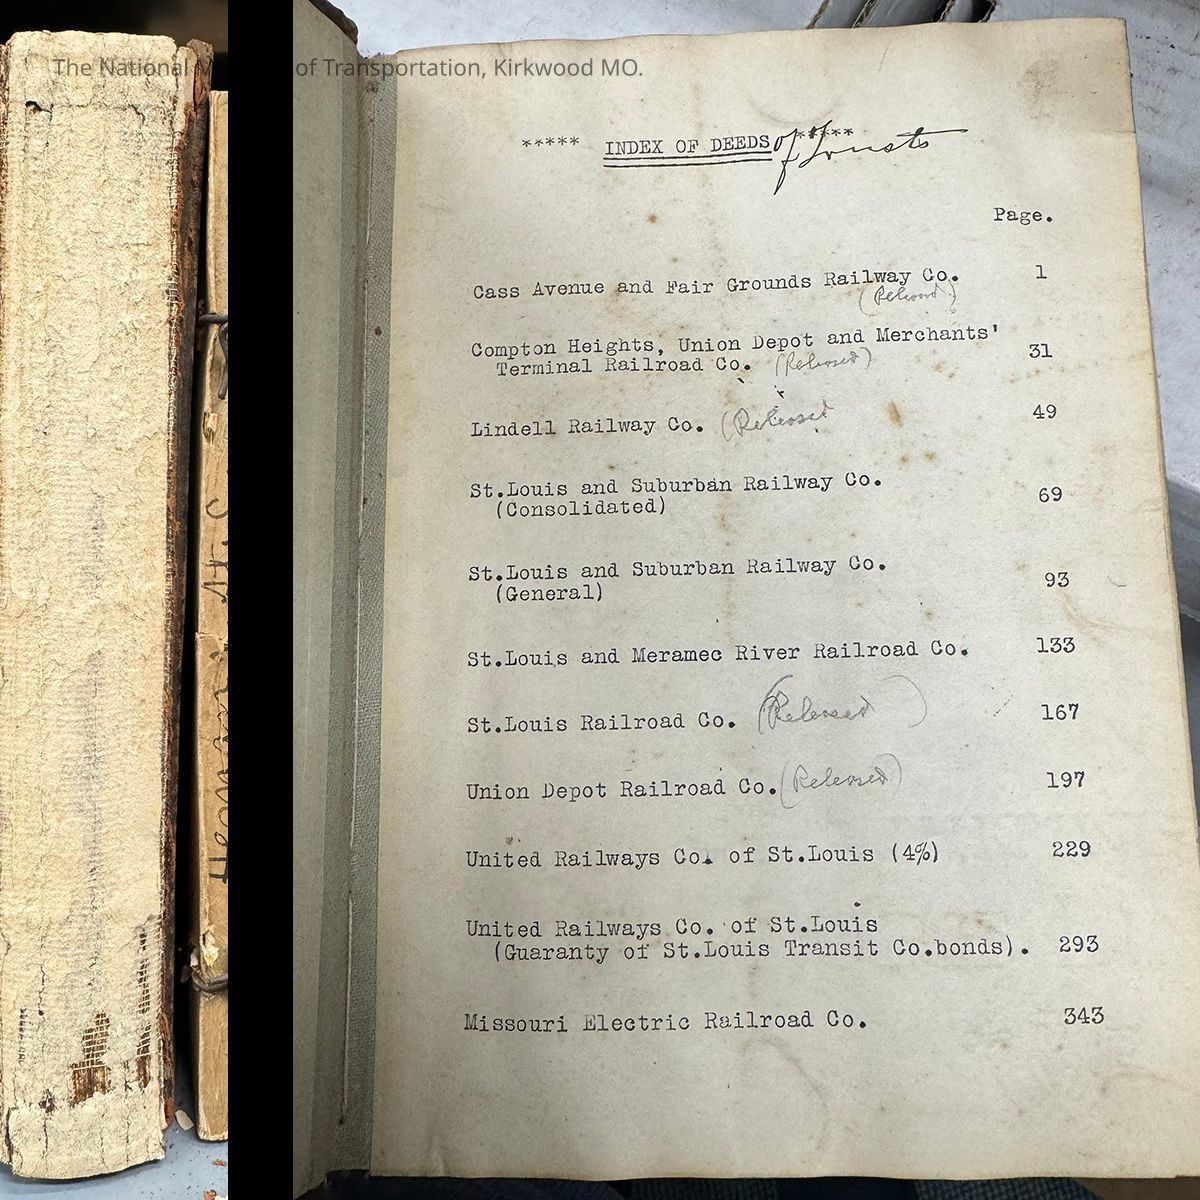 The National M of Transportation, Kirkwood MO.
***** INDEX OF DEEDS of Trusts *****
Page.
Cass Avenue and Fair Grounds Railway Co. 1
(Released)
Compton Heights, Union Depot and Merchants'
Terminal Railroad Co. (Released) 31
Lindell Railway Co. (Released 49
St.Louis and Suburban Railway Co.
(Consolidated) 69
St.Louis and Suburban Railway Co.
(General) 93
St.Louis and Meramec River Railroad Co. 133
St.Louis Railroad Co. (Released) 167
Union Depot Railroad Co. (Released) 197
United Railways Co. of St.Louis (4%) 229
United Railways Co. of St.Louis
(Guaranty of St.Louis Transit Co.bonds). 293
Missouri Electric Railroad Co. 343